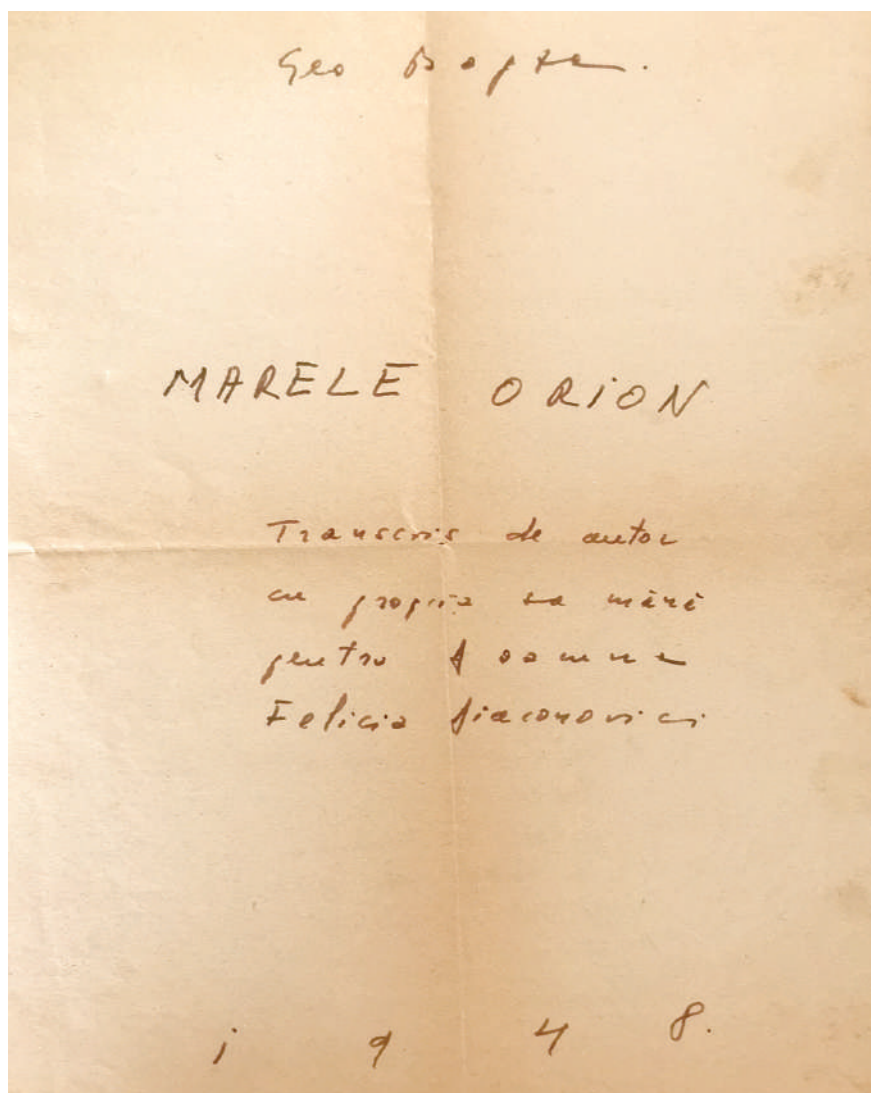 Geo Bogza.
MARELE ORION
Transcris de autor
cu propria sa mână
pentru doamna
Felicia Diaconovici
1948.